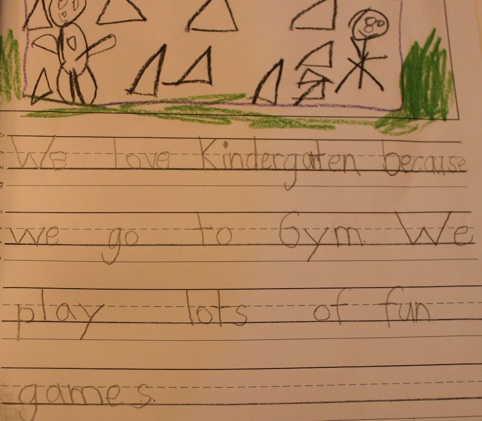 We love Kindergarten because
we go to Gym We
play lots of fun
games.